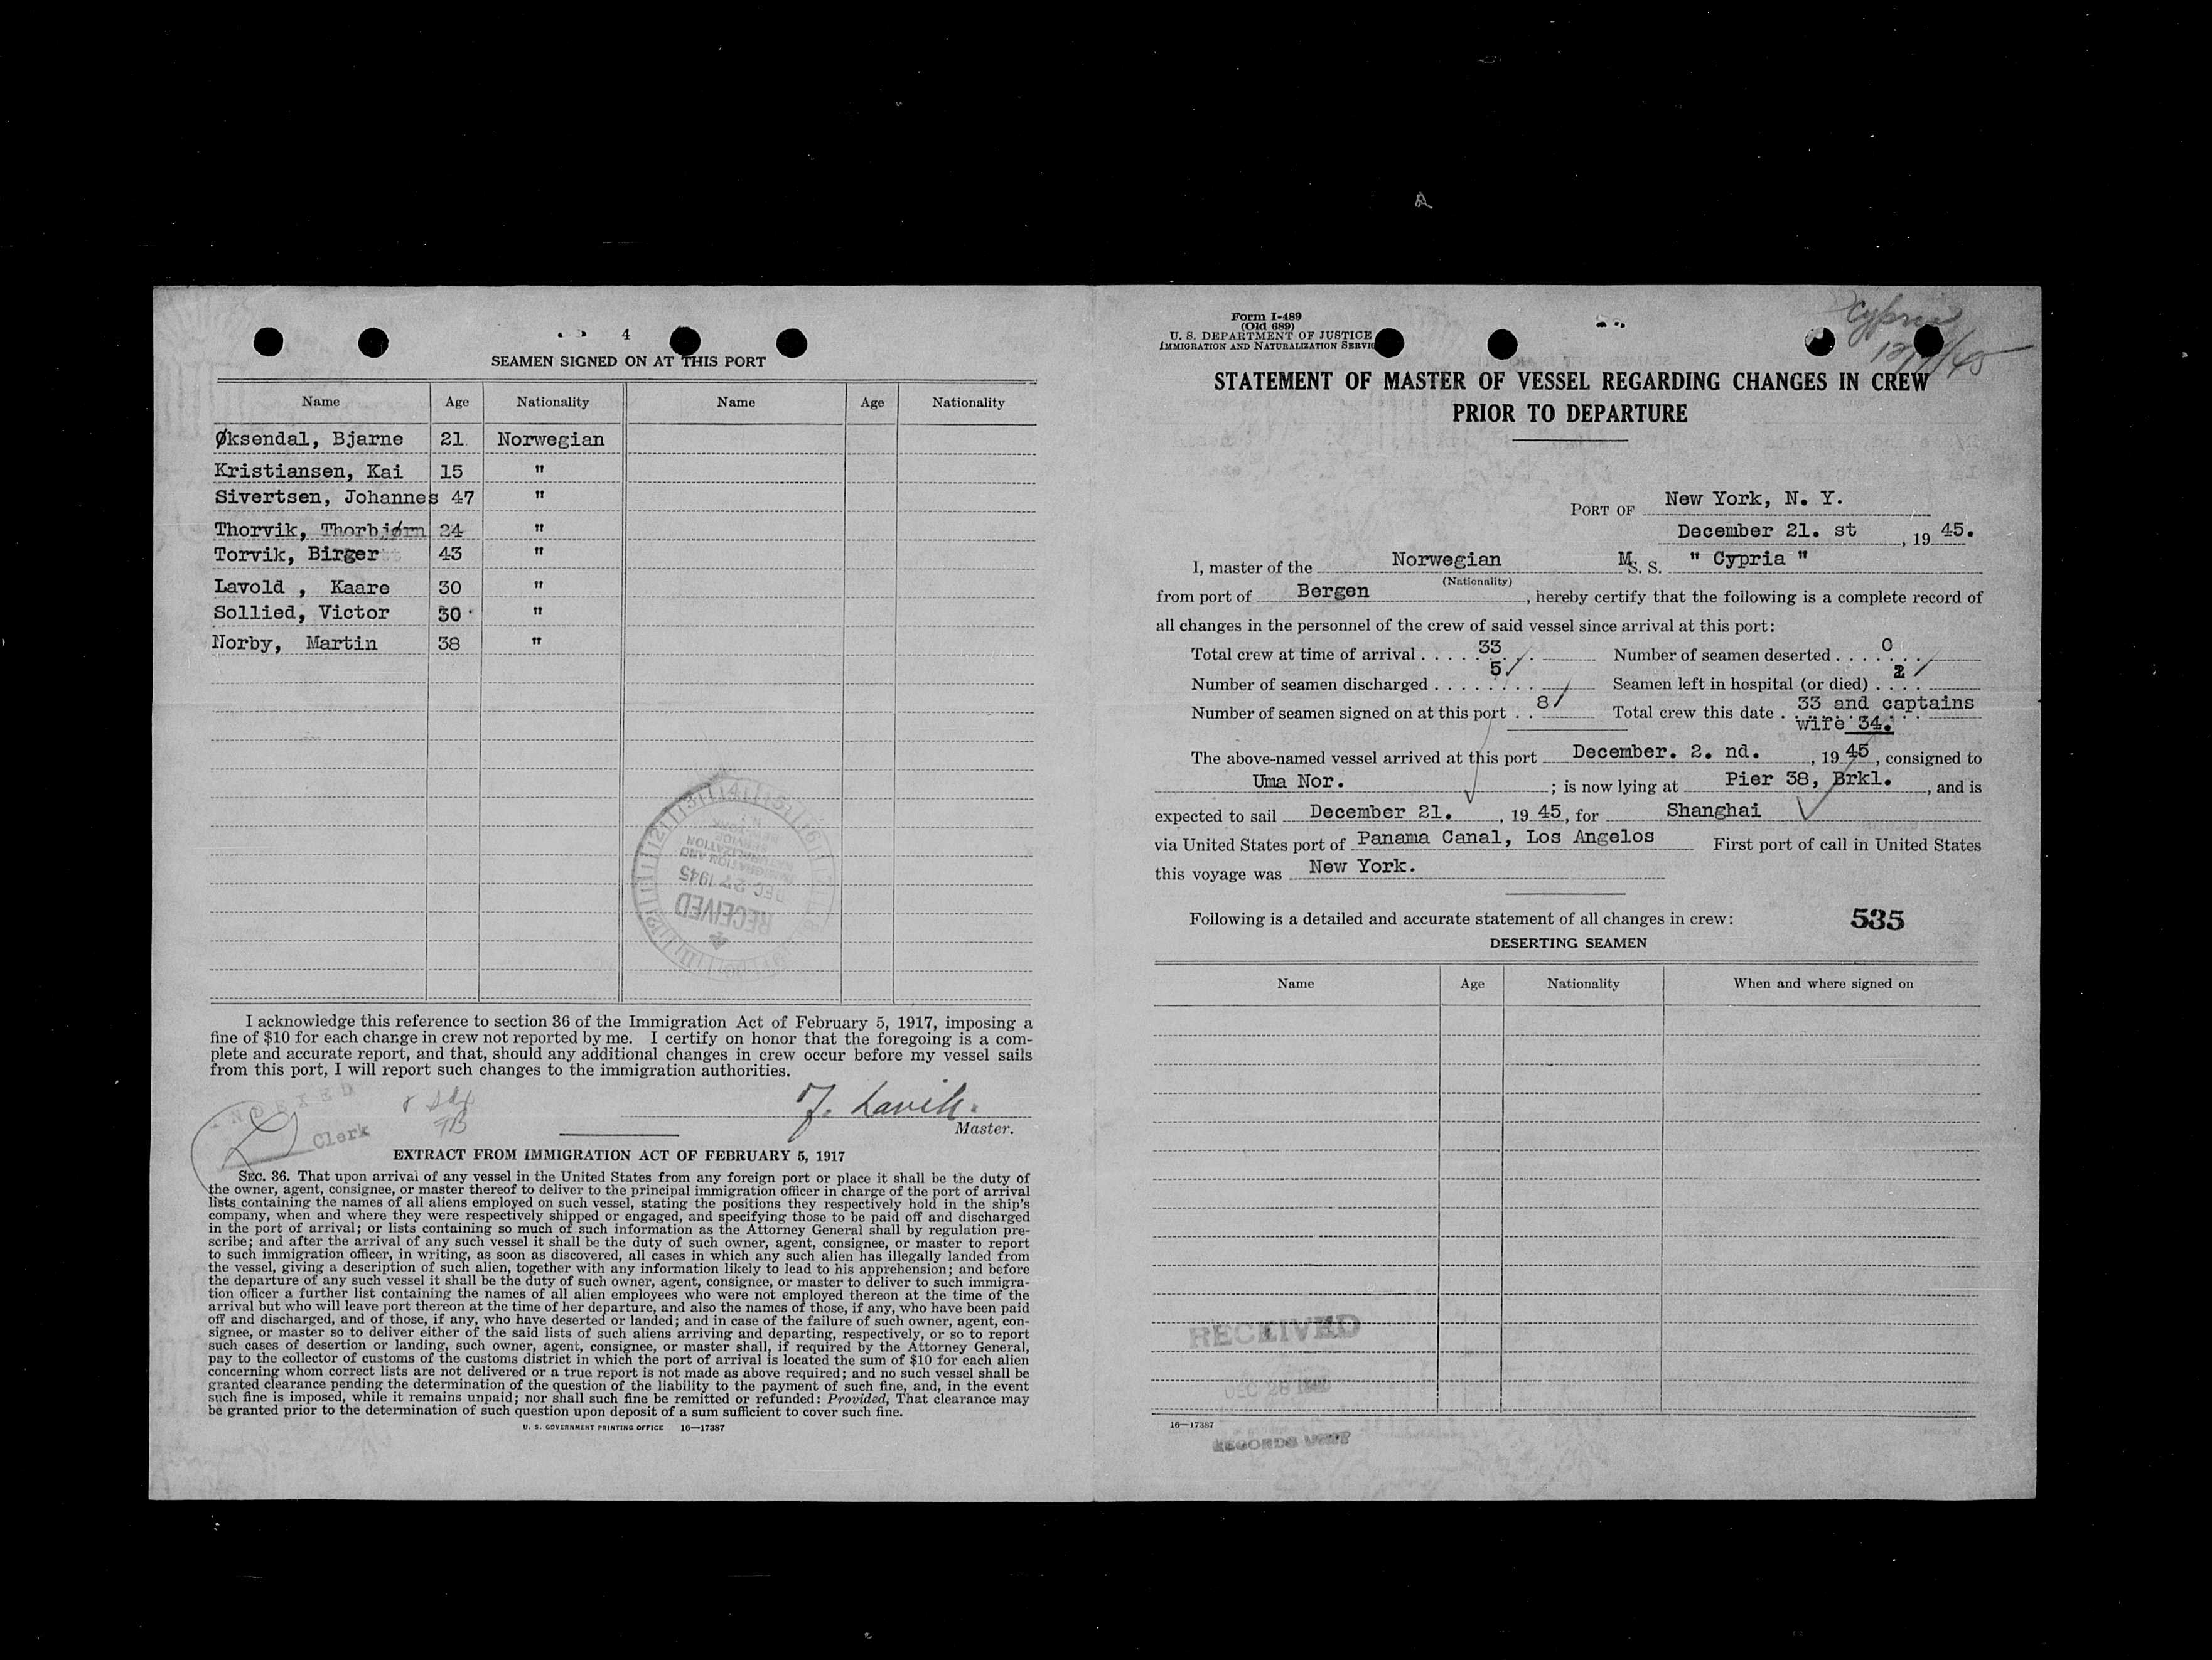 4
SEAMEN SIGNED ON AT THIS PORT
Name Age Nationality Name Age Nationality
Øksendal, Bjarne 21 Norwegian
Kristiansen, Kai 15 "
Sivertsen, Johannes 47 "
Thorvik, Thorbjørn 24 "
Torvik, Birger 43 "
Lavold , Kaare 30 "
Sollied, Victor 30 "
Norby, Martin 38 "
RECEIVED
DEC 27 1945
IMMIGRATION AND
NATURALIZATION
SERVICE
I acknowledge this reference to section 36 of the Immigration Act of February 5, 1917, imposing a
fine of $10 for each change in crew not reported by me. I certify on honor that the foregoing is a com-
plete and accurate report, and that, should any additional changes in crew occur before my vessel sails
from this port, I will report such changes to the immigration authorities.
INDEXED
Clerk
Master.
EXTRACT FROM IMMIGRATION ACT OF FEBRUARY 5, 1917
SEC. 36. That upon arrival of any vessel in the United States from any foreign port or place it shall be the duty of
the owner, agent, consignee, or master thereof to deliver to the principal immigration officer in charge of the port of arrival
lists containing the names of all aliens employed on such vessel, stating the positions they respectively hold in the ship's
company, when and where they were respectively shipped or engaged, and specifying those to be paid off and discharged
in the port of arrival; or lists containing so much of such information as the Attorney General shall by regulation pre-
scribe; and after the arrival of any such vessel it shall be the duty of such owner, agent, consignee, or master to report
to such immigration officer, in writing, as soon as discovered, all cases in which any such alien has illegally landed from
the vessel, giving a description of such alien, together with any information likely to lead to his apprehension; and before
the departure of any such vessel it shall be the duty of such owner, agent, consignee, or master to deliver to such immigra-
tion officer a further list containing the names of all alien employees who were not employed thereon at the time of the
arrival but who will leave port thereon at the time of her departure, and also the names of those, if any, who have been paid
off and discharged, and of those, if any, who have deserted or landed; and in case of the failure of such owner, agent, con-
signee, or master so to deliver either of the said lists of such aliens arriving and departing, respectively, or so to report
such cases of desertion or landing, such owner, agent, consignee, or master shall, if required by the Attorney General,
pay to the collector of customs of the customs district in which the port of arrival is located the sum of $10 for each alien
concerning whom correct lists are not delivered or a true report is not made as above required; and no such vessel shall be
granted clearance pending the determination of the question of the liability to the payment of such fine, and, in the event
such fine is imposed, while it remains unpaid; nor shall such fine be remitted or refunded: Provided, That clearance may
be granted prior to the determination of such question upon deposit of a sum sufficient to cover such fine.
U. S. GOVERNMENT PRINTING OFFICE 16—17387
Form I-489
(Old 689)
U. S. DEPARTMENT OF JUSTICE
IMMIGRATION AND NATURALIZATION SERVIC
Cypria
STATEMENT OF MASTER OF VESSEL REGARDING CHANGES IN CREW
PRIOR TO DEPARTURE
PORT OF New York, N. Y.
December 21. st , 19 45.
I, master of the Norwegian M S. S. " Cypria "
(Nationality)
from port of Bergen , hereby certify that the following is a complete record of
all changes in the personnel of the crew of said vessel since arrival at this port:
Total crew at time of arrival . . . . 33 Number of seamen deserted . . . . 0
Number of seamen discharged . . . . 5 Seamen left in hospital (or died) . . . .
Number of seamen signed on at this port . . 8 Total crew this date . 33 and captains
wife 34.
The above-named vessel arrived at this port December. 2. nd. , 19 45 , consigned to
Uma Nor. ; is now lying at Pier 38, Brkl. , and is
expected to sail December 21. , 19 45, for Shanghai
via United States port of Panama Canal, Los Angelos First port of call in United States
this voyage was New York.
Following is a detailed and accurate statement of all changes in crew: 535
DESERTING SEAMEN
Name Age Nationality When and where signed on
RECEIVED
DEC 28
16—17387
RECORDS UNIT